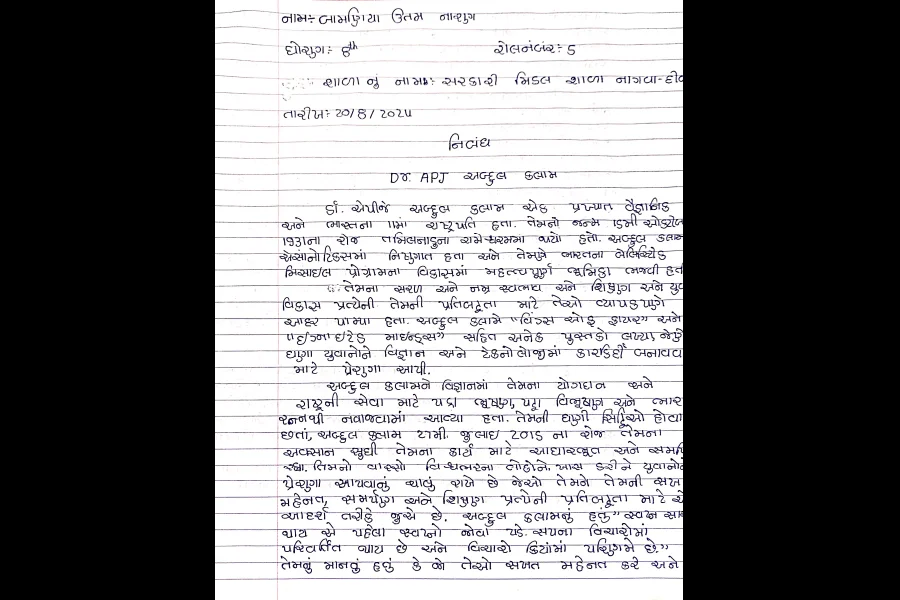 નામઃ- બામણિયા ઉત્તમ નારાણ
ધોરણઃ- 8th રોલનંબરઃ- 5
શાળા નુ નામઃ- સરકારી મિડલ શાળા નાગવા-દીવ
તારીખઃ- 20/8/2024
નિબંધ
Dr. APJ અબ્દુલ કલામ
ર્ડા. એપીજે અબ્દુલ કલામ એક પ્રખ્યાત વૈજ્ઞાનિક
અને ભારતના 11માં રાષ્ટ્રપતિ હતા. તેમનો જન્મ 15મી ઓક્ટોબ
1931ના રોજ તમિલનાડુના રામેશ્વરમમાં થયો હતો. અબ્દુલ કલામ
એરોનોટિકસમાં નિષ્ણાત હતા અને તેમણે ભારતના બેલિસ્ટિક
મિસાઇલ પ્રોગ્રામના વિકાસમાં મહત્વપૂર્ણ ભૂમિકા ભજવી હતી
તેમના સરળ અને નમ્ર સ્વભાવ અને શિક્ષણ અને યુવ
વિકાસ પ્રત્યેની તેમની પ્રતિબદ્ધતા માટે તેઓ વ્યાપકપણે
આદર પામ્યા હતા. અબ્દુલ કલામે "વિંગ્સ ઓફ ફાયર" અને
"ઇગ્નાઇટેડ માઇન્ડ્સ" સહિત અનેક પુસ્તકો લખ્યા, જેણે
ઘણા યુવાનોને વિજ્ઞાન અને ટેકનોલોજીમાં કારકિર્દી બનાવવ
માટે પ્રેરણા આપી.
અબ્દુલ કલામને વિજ્ઞાનમાં તેમના યોગદાન અને
રાષ્ટ્રની સેવા માટે પદ્મ ભૂષણ, પદ્મ વિભૂષણ અને ભાર
રત્નથી નવાજવામાં આવ્યા હતા. તેમની ઘણી સિદ્ધિઓ હોવા
છતાં, અબ્દુલ કલામ 27મી જુલાઇ 2015 ના રોજ તેમના
અવસાન સુધી તેમના કાર્ય માટે આધારભૂત અને સમર્પિ
રહ્યા. તેમનો વારસો વિશ્વભરના લોકોને, ખાસ કરીને યુવાનોને
પ્રેરણા આપવાનું ચાલું રાખે છે જેઓ તેમને તેમની સખ
મહેનત, સમર્પણ અને શિક્ષણ પ્રત્યેની પ્રતિબદ્ધતા માટે એ
આદર્શ તરીકે જુએ છે. અબ્દુલ કલામનું હતું "સ્વપ્ન સાચ
થાય એ પહેલા સ્વપ્નો જોવા પડે. સપના વિચારોમાં
પરિવર્તિત થાય છે અને વિચારો ક્રિયામાં પરિણમે છે."
તેમનું માનવું હતું કે જો તેઓ સખત મહેનત કરે અને